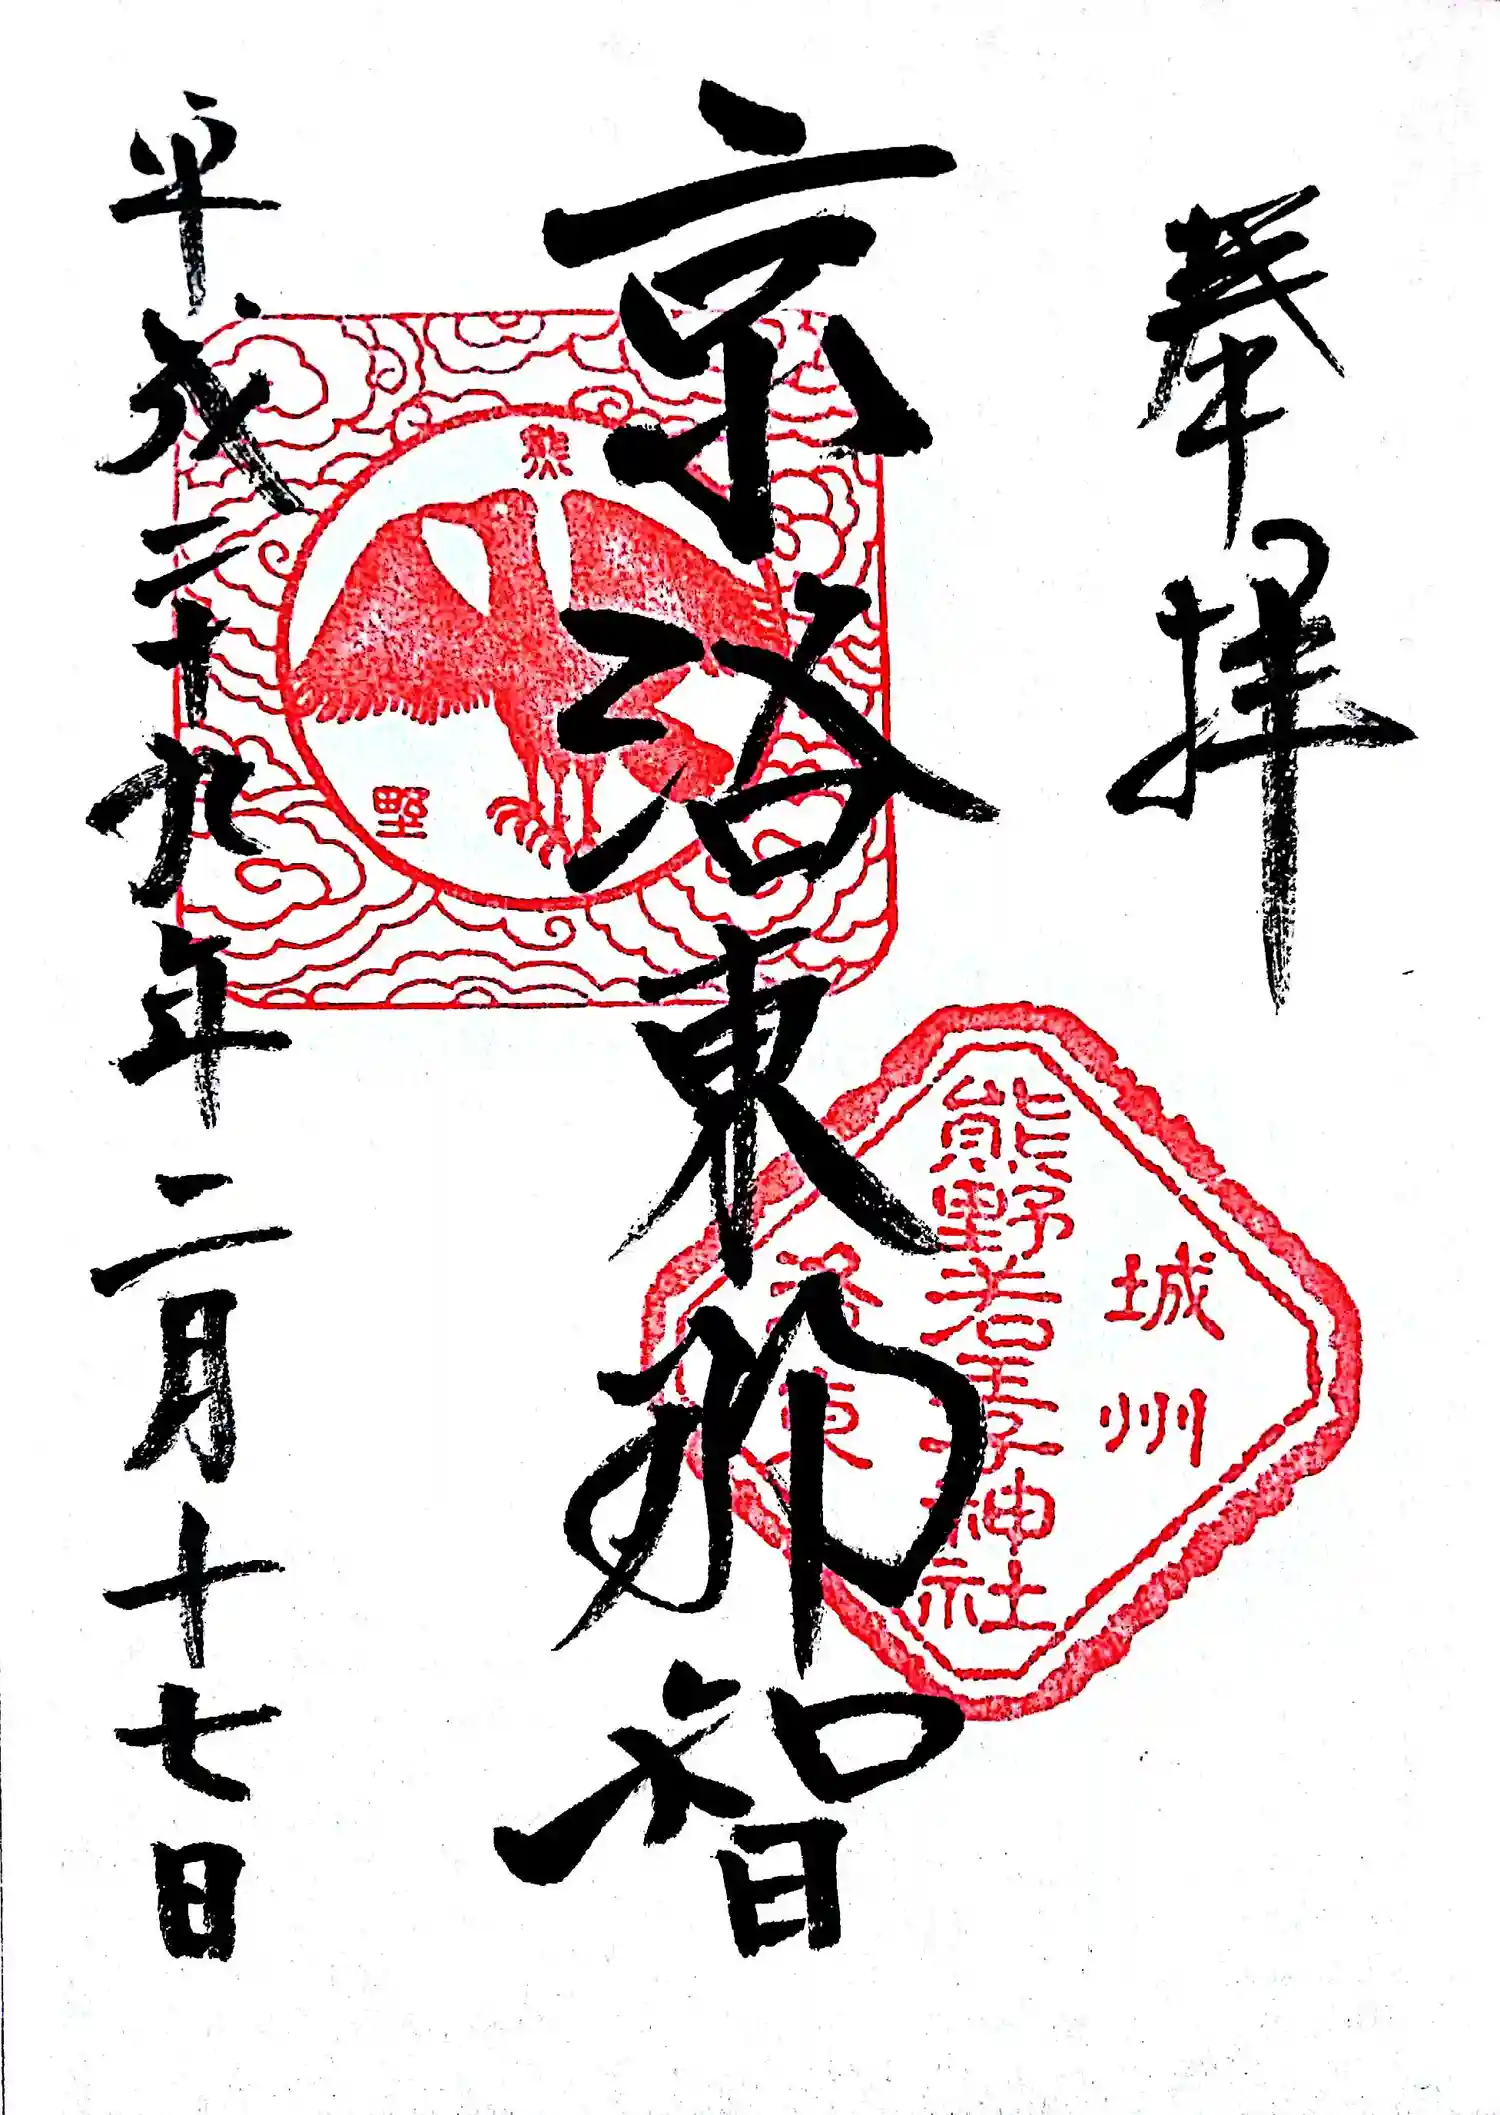 奉拝
京洛東那智
平成二十九年二月十七日
熊野
城州
熊野若王子神社
洛東